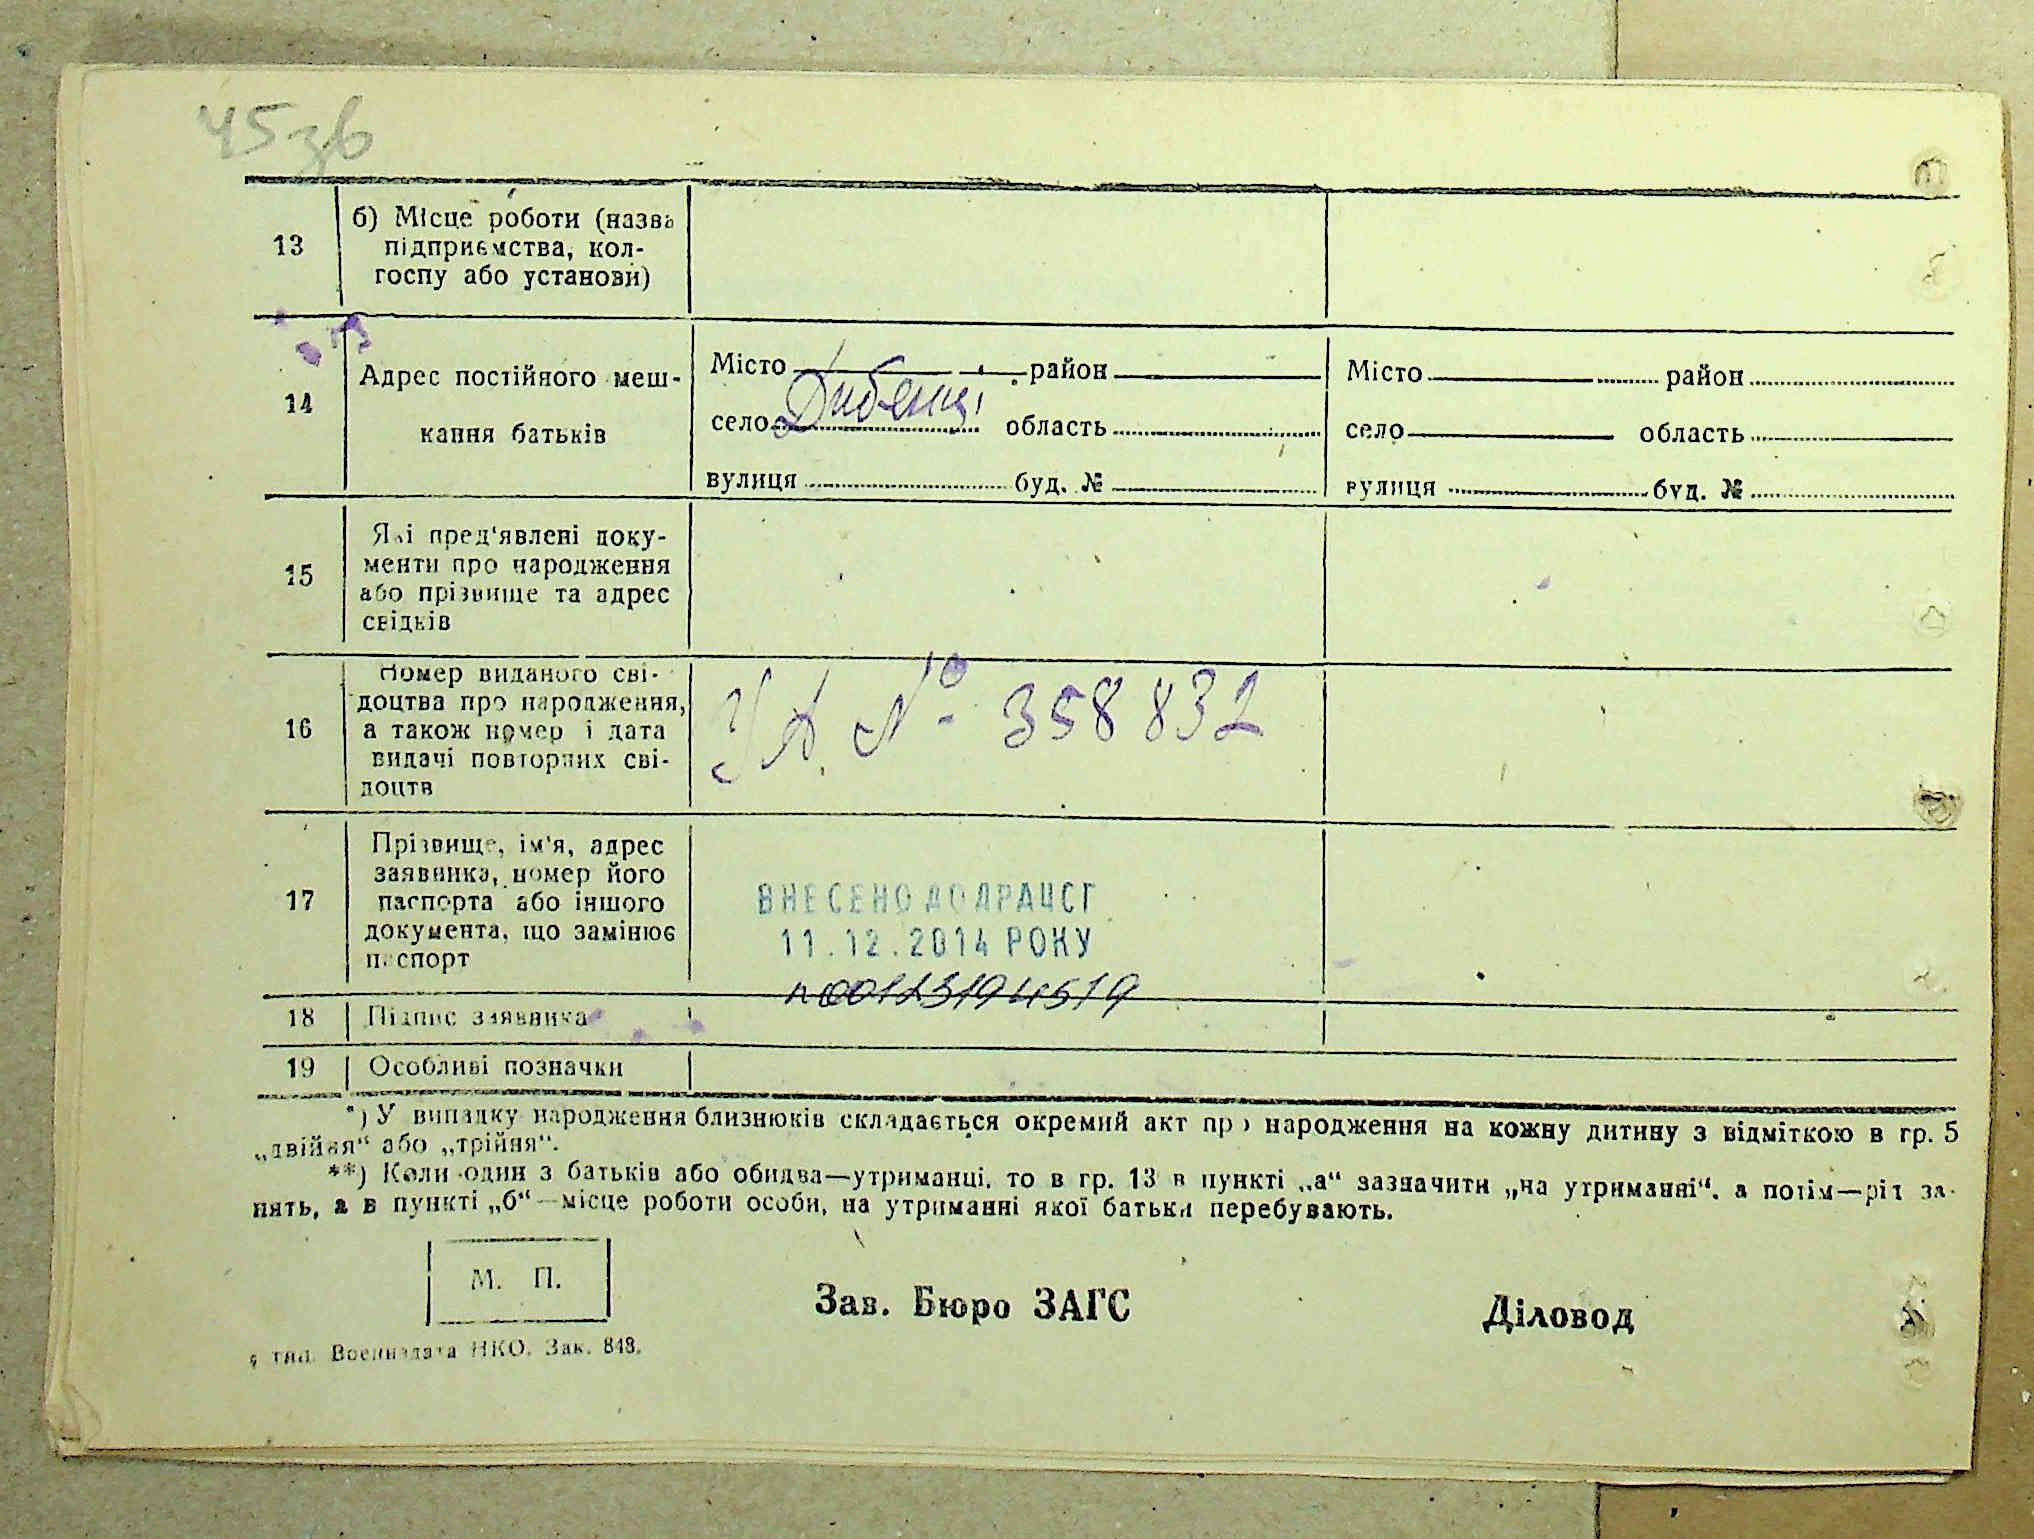 45зв
13
б) Місце роботи (назва
підприємства, кол-
госпу або установи)
14
Адрес постійного меш-
кання батьків
Місто район
село Дибенці область
вулиця буд. №
Місто район
село область
вулиця буд. №
15
Які пред'явлені доку-
менти про народження
або прізвище та адрес
свідків
16
Номер виданого сві-
доцтва про народження,
а також номер і дата
видачі повторних сві-
доцтв
УА № 358832
17
Прізвище, ім'я, адрес
заявника, номер його
паспорта або іншого
документа, що замінює
паспорт
ВНЕСЕНО ДО ДРАЦСГ
11.12.2014 РОКУ
18
Підпис заявника
19
Особливі позначки
*) У випадку народження близнюків складається окремий акт про народження на кожну дитину з відміткою в гр. 5
„двійня“ або „трійня“.
**) Коли один з батьків або обидва—утриманці, то в гр. 13 в пункті „а“ зазначити „на утриманні“, а потім—рід за-
нять, а в пункті „б“—місце роботи особи, на утриманні якої батьки перебувають.
М. П.
Зав. Бюро ЗАГС
Діловод
тип. Воениздата НКО. Зак. 848.